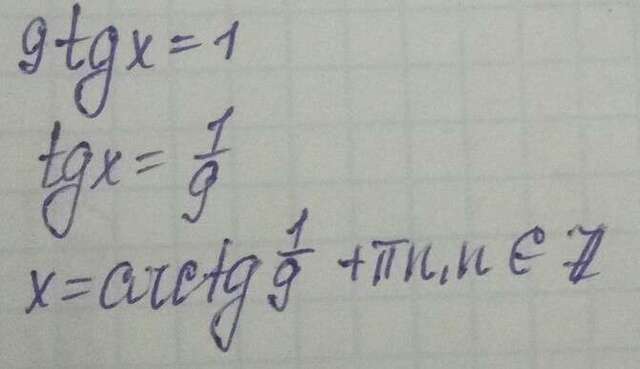 9tgx = 1
tgx = 1/9
x = arctg 1/9 + πn, n ∈ Z